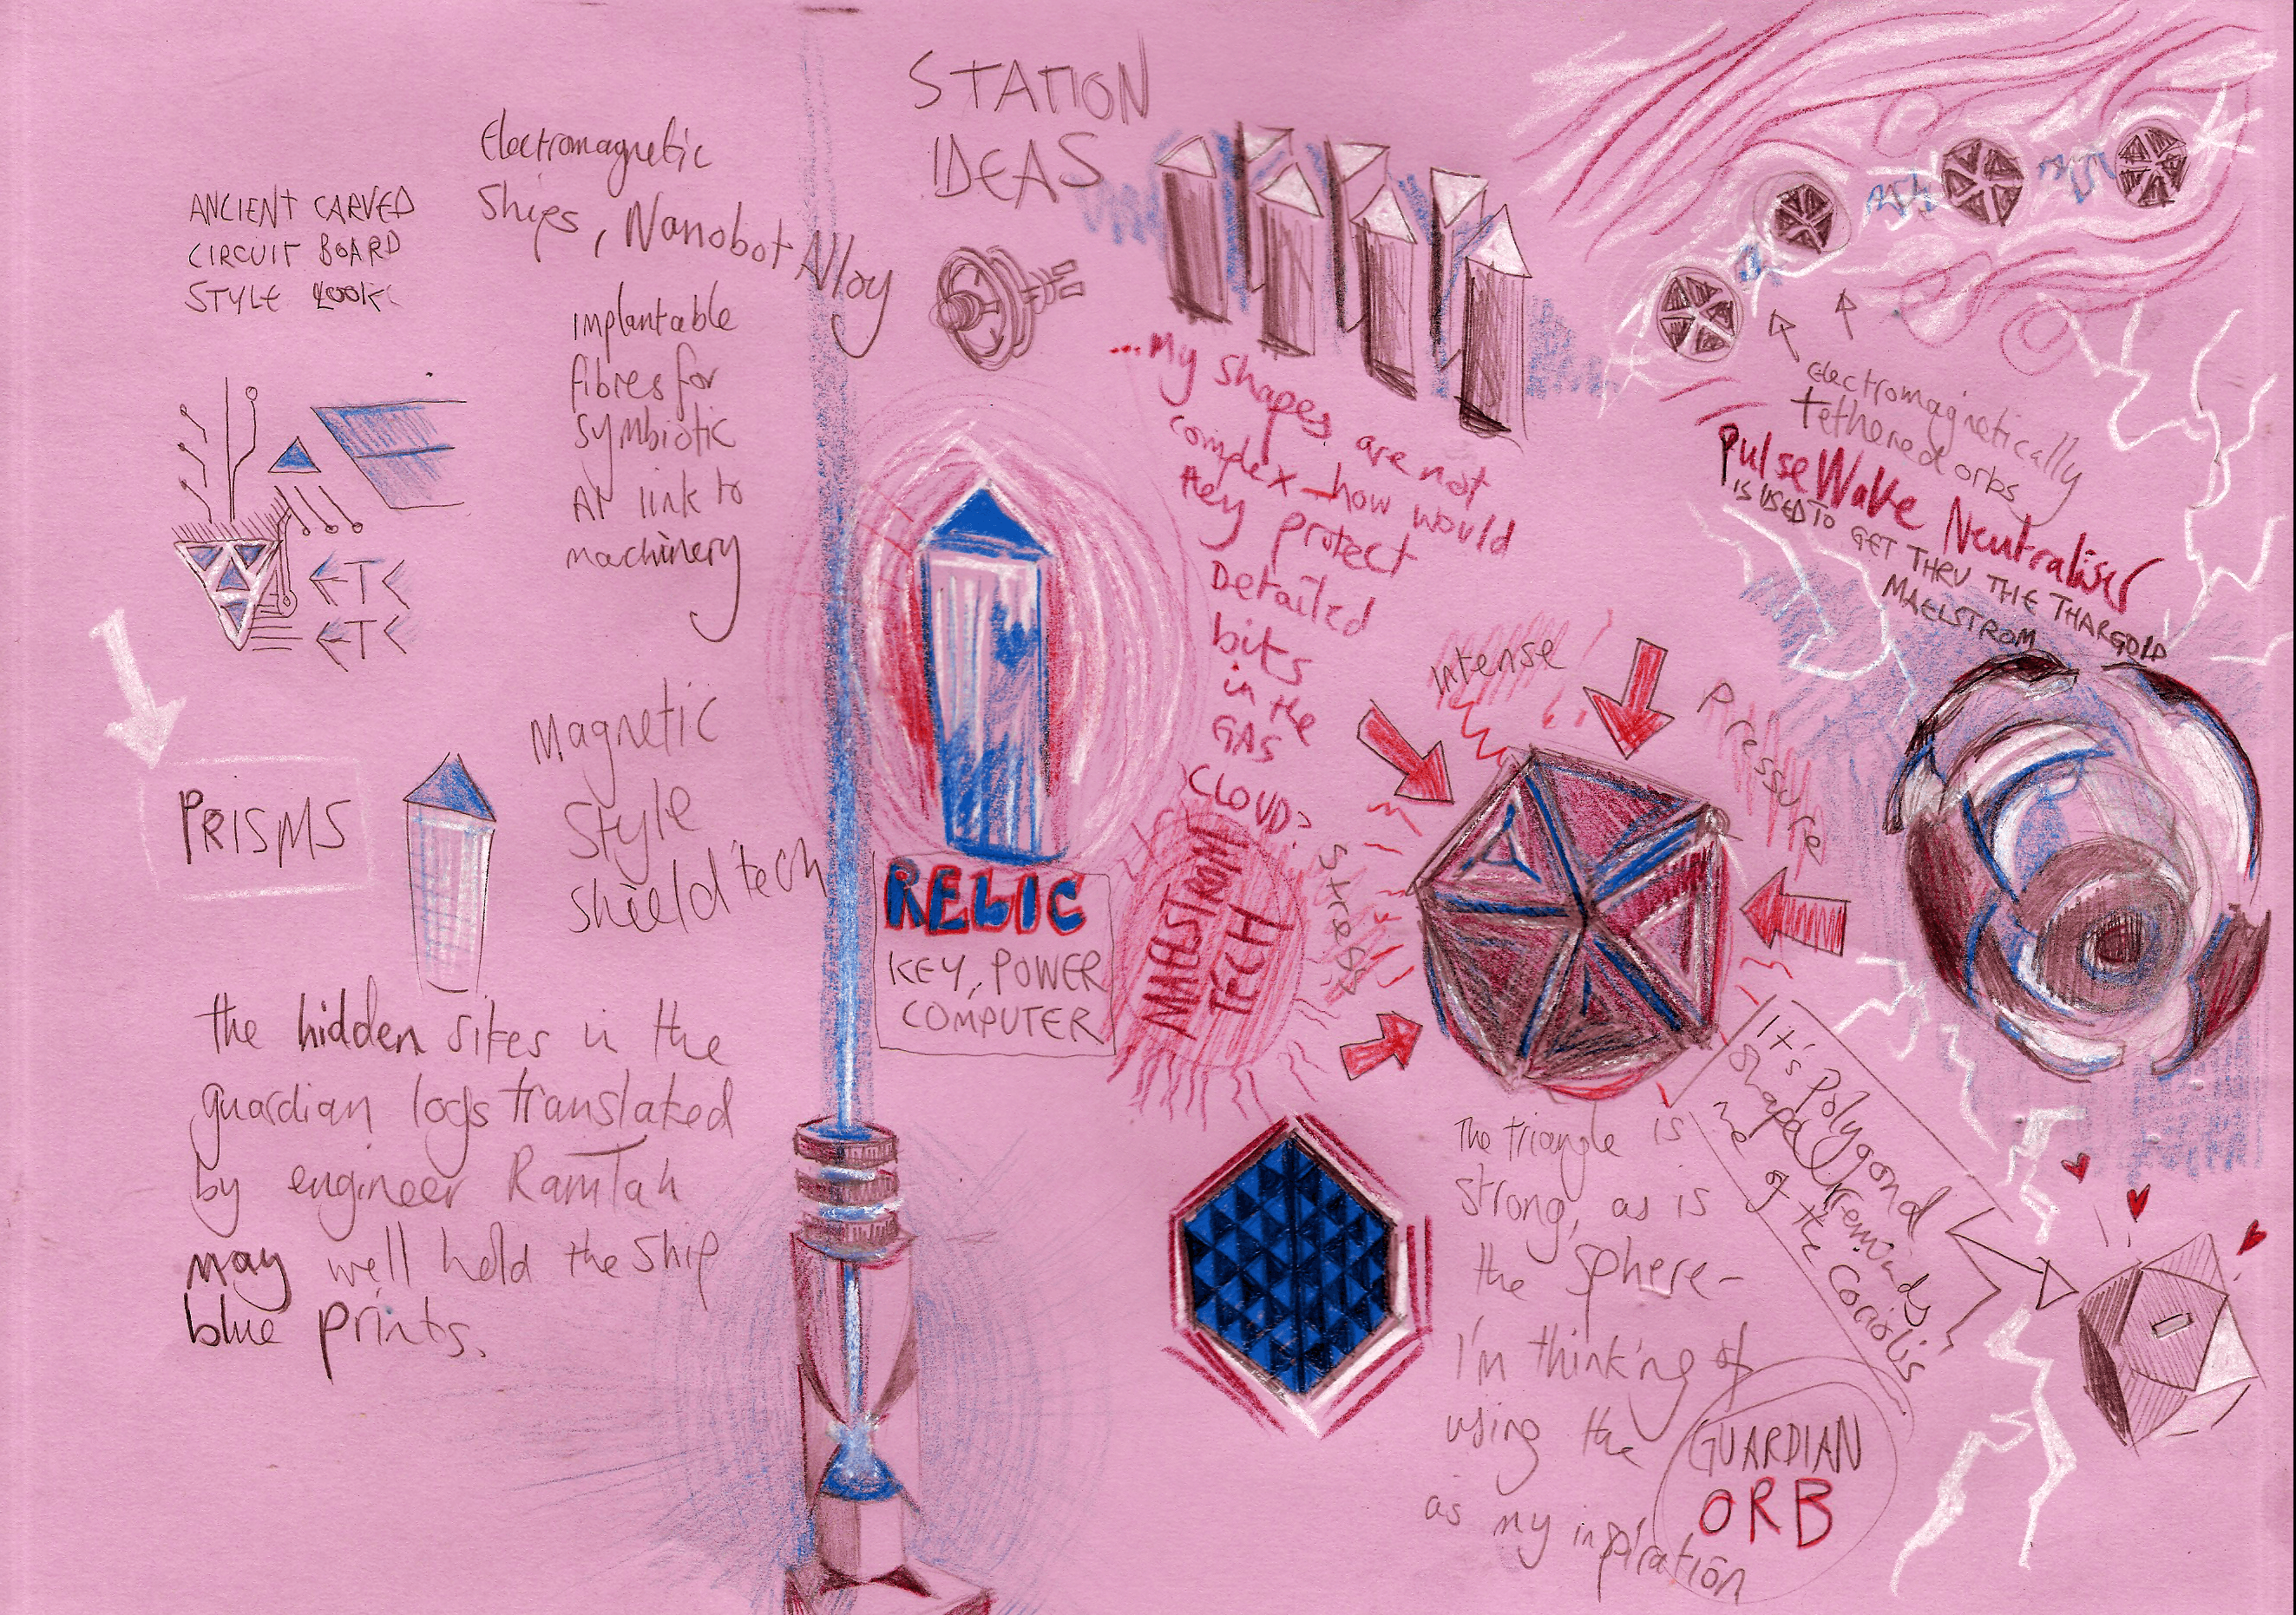 STATION
IDEAS
Electromagnetic
Ships, Nanobot Alloy
ANCIENT CARVED
CIRCUIT BOARD
STYLE LOOK
Implantable
fibres for
symbiotic
AI link to
machinery
ETC
ETC
PRISMS
Magnetic
Style
shield tech
the hidden sites in the
guardian logs translated
by engineer Ram Tah
may well hold the ship
blue prints.
RELIC
KEY, POWER
COMPUTER
...My shapes are not
complex - how would
they protect
Detailed
bits
in the
GAS
CLOUD?
MAELSTROM
TECH
electromagnetically
tethered orbs
Pulse Wake Neutraliser
IS USED TO GET THRU THE THARGOID
MAELSTROM
Intense
Pressure
Stress
It's Polygond
shape reminds
me of the Coriolis
The triangle is
strong, as is
the sphere-
I'm thinking of
using the
GUARDIAN
ORB
as my inspiration